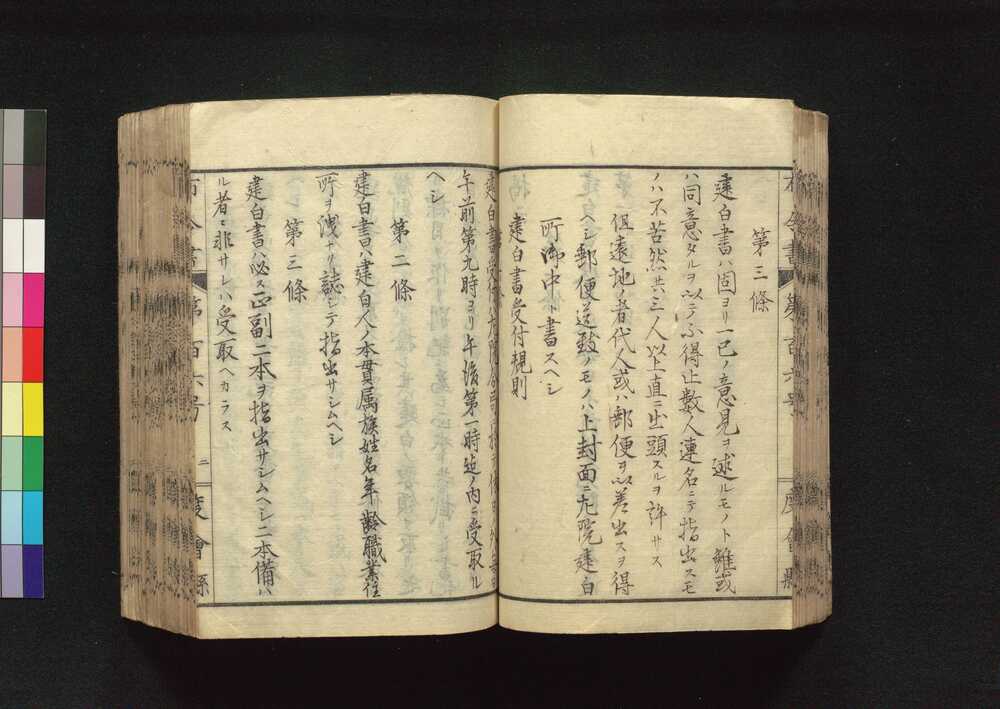 第三條
建白書ハ固ヨリ一己ノ意見ヲ述ルモノト雖或
ハ同意タルヲ以テ不得止數人連名ニテ指出スモ
ノハ不苦然共三人以上直ニ出頭スルヲ許サス
但遠地ノ者代人或ハ郵便ヲ以差出スヲ得
ヘシ郵便送致ノモノハ上封面ニ九院建白
所御中ト書スヘシ
建白書受付規則
建白書受付ハ
午前第九時ヨリ午後第一時迄ノ内ニ受取ル
ヘシ
第二條
建白書ハ建白人ノ本貫属族姓名年齡職業住
所ヲ洩ナク誌シテ指出サシムヘシ
第三條
建白書ハ必ス正副二本ヲ指出サシムヘシ二本備ハ
ル者ニ非サレハ受取ヘカラス
布令書 第百六号 二 度會縣